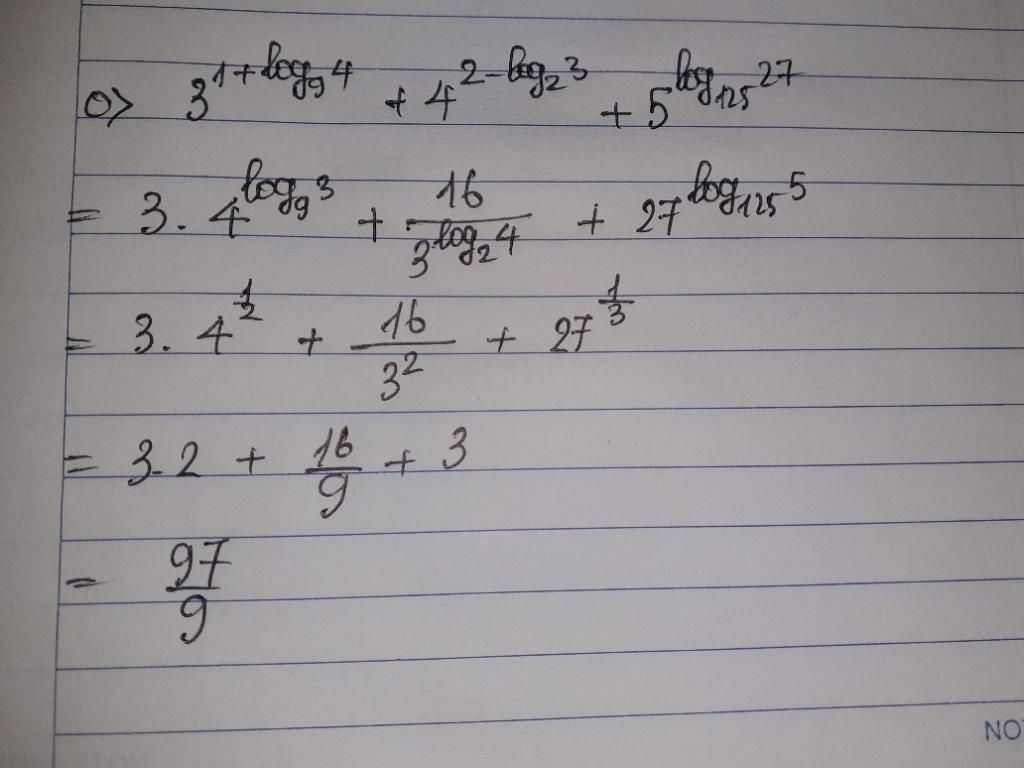 o> 3^{1+log_9 4} + 4^{2-log_2 3} + 5^{log_{125} 27}
= 3. 4^{log_9 3} + \frac{16}{3^{log_2 4}} + 27^{log_{125} 5}
= 3. 4^{\frac{1}{2}} + \frac{16}{3^2} + 27^{\frac{1}{3}}
= 3.2 + \frac{16}{9} + 3
= \frac{97}{9}